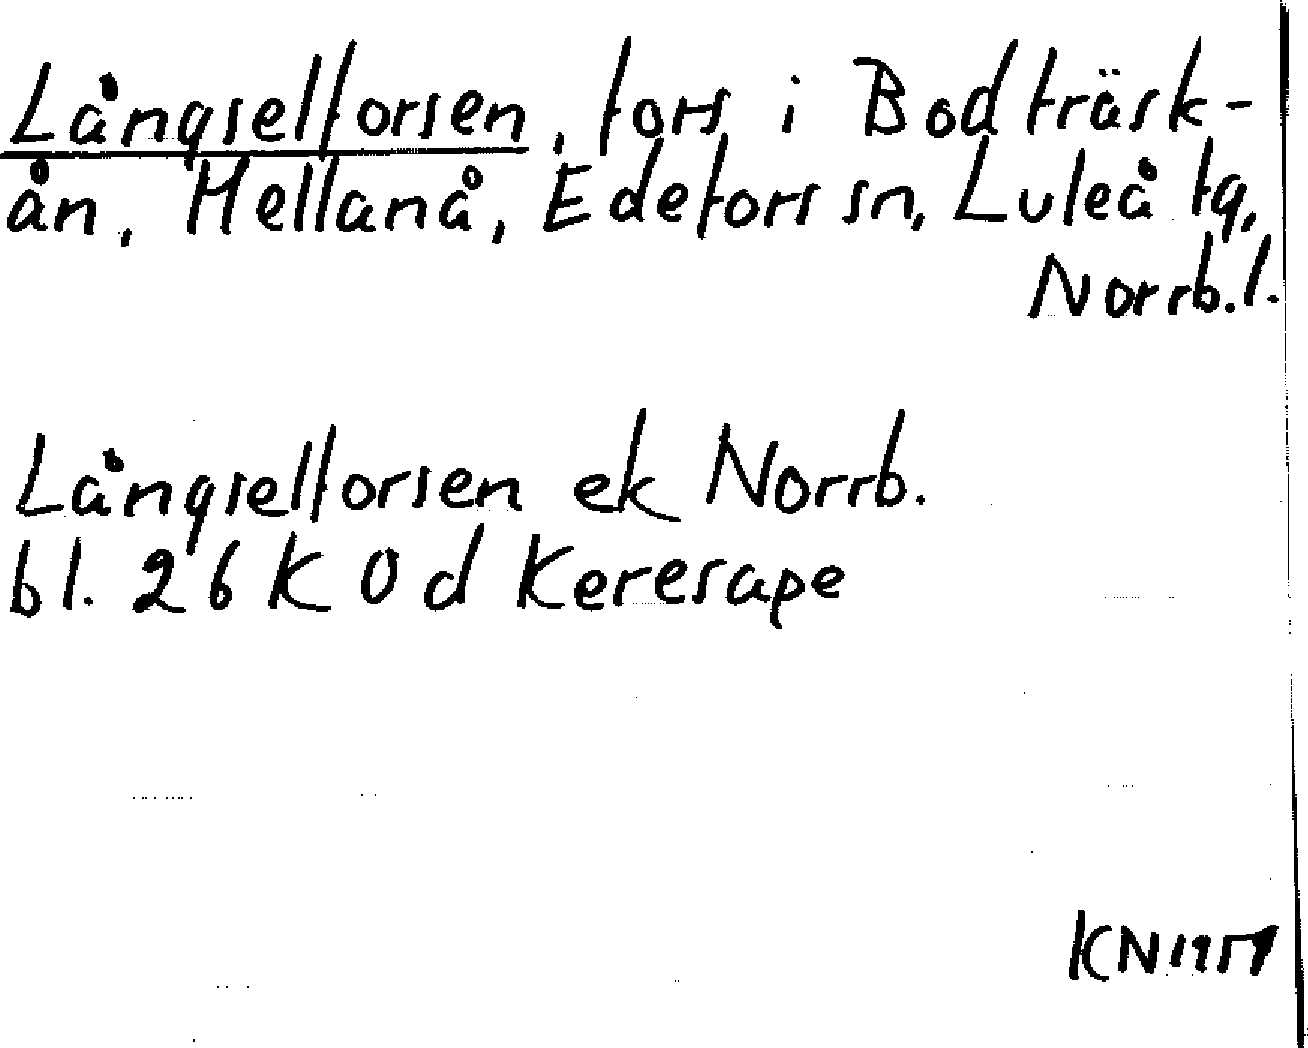 Långselforsen, fors i Bodträsk-
ån, Mellanå, Edefors sn, Luleå tg,
Norrb. l.
Långselforsen ek Norrb.
bl. 26 K 0 d Keresape
KN